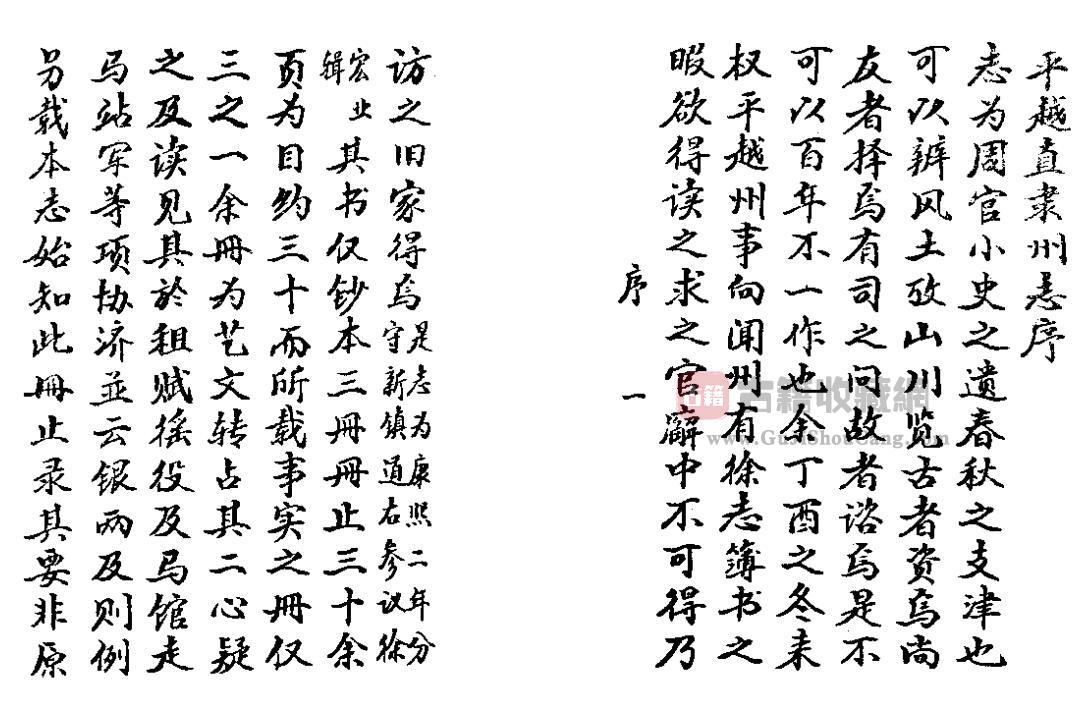 平越直隶州志序
志为周官小史之遗春秋之支津也
可以辨风土攷山川览古者资焉尚
友者择焉有司之问故者谘焉是不
可以百年不一作也余丁酉之冬来
权平越州事向闻州有徐志簿书之
暇欲得读之求之官廨中不可得乃
序 一
访之旧家得焉是志为康熙二年分守新镇道右参议徐
宏业辑其书仅钞本三册册止三十余
页为目约三十而所载事实之册仅
三之一余册为艺文转占其二心疑
之及读见其於租赋徭役及马馆走
马站军等项协济並云银两及则例
另载本志始知此册止录其要非原
古籍 古籍收藏網
www.GujiShouCang.com